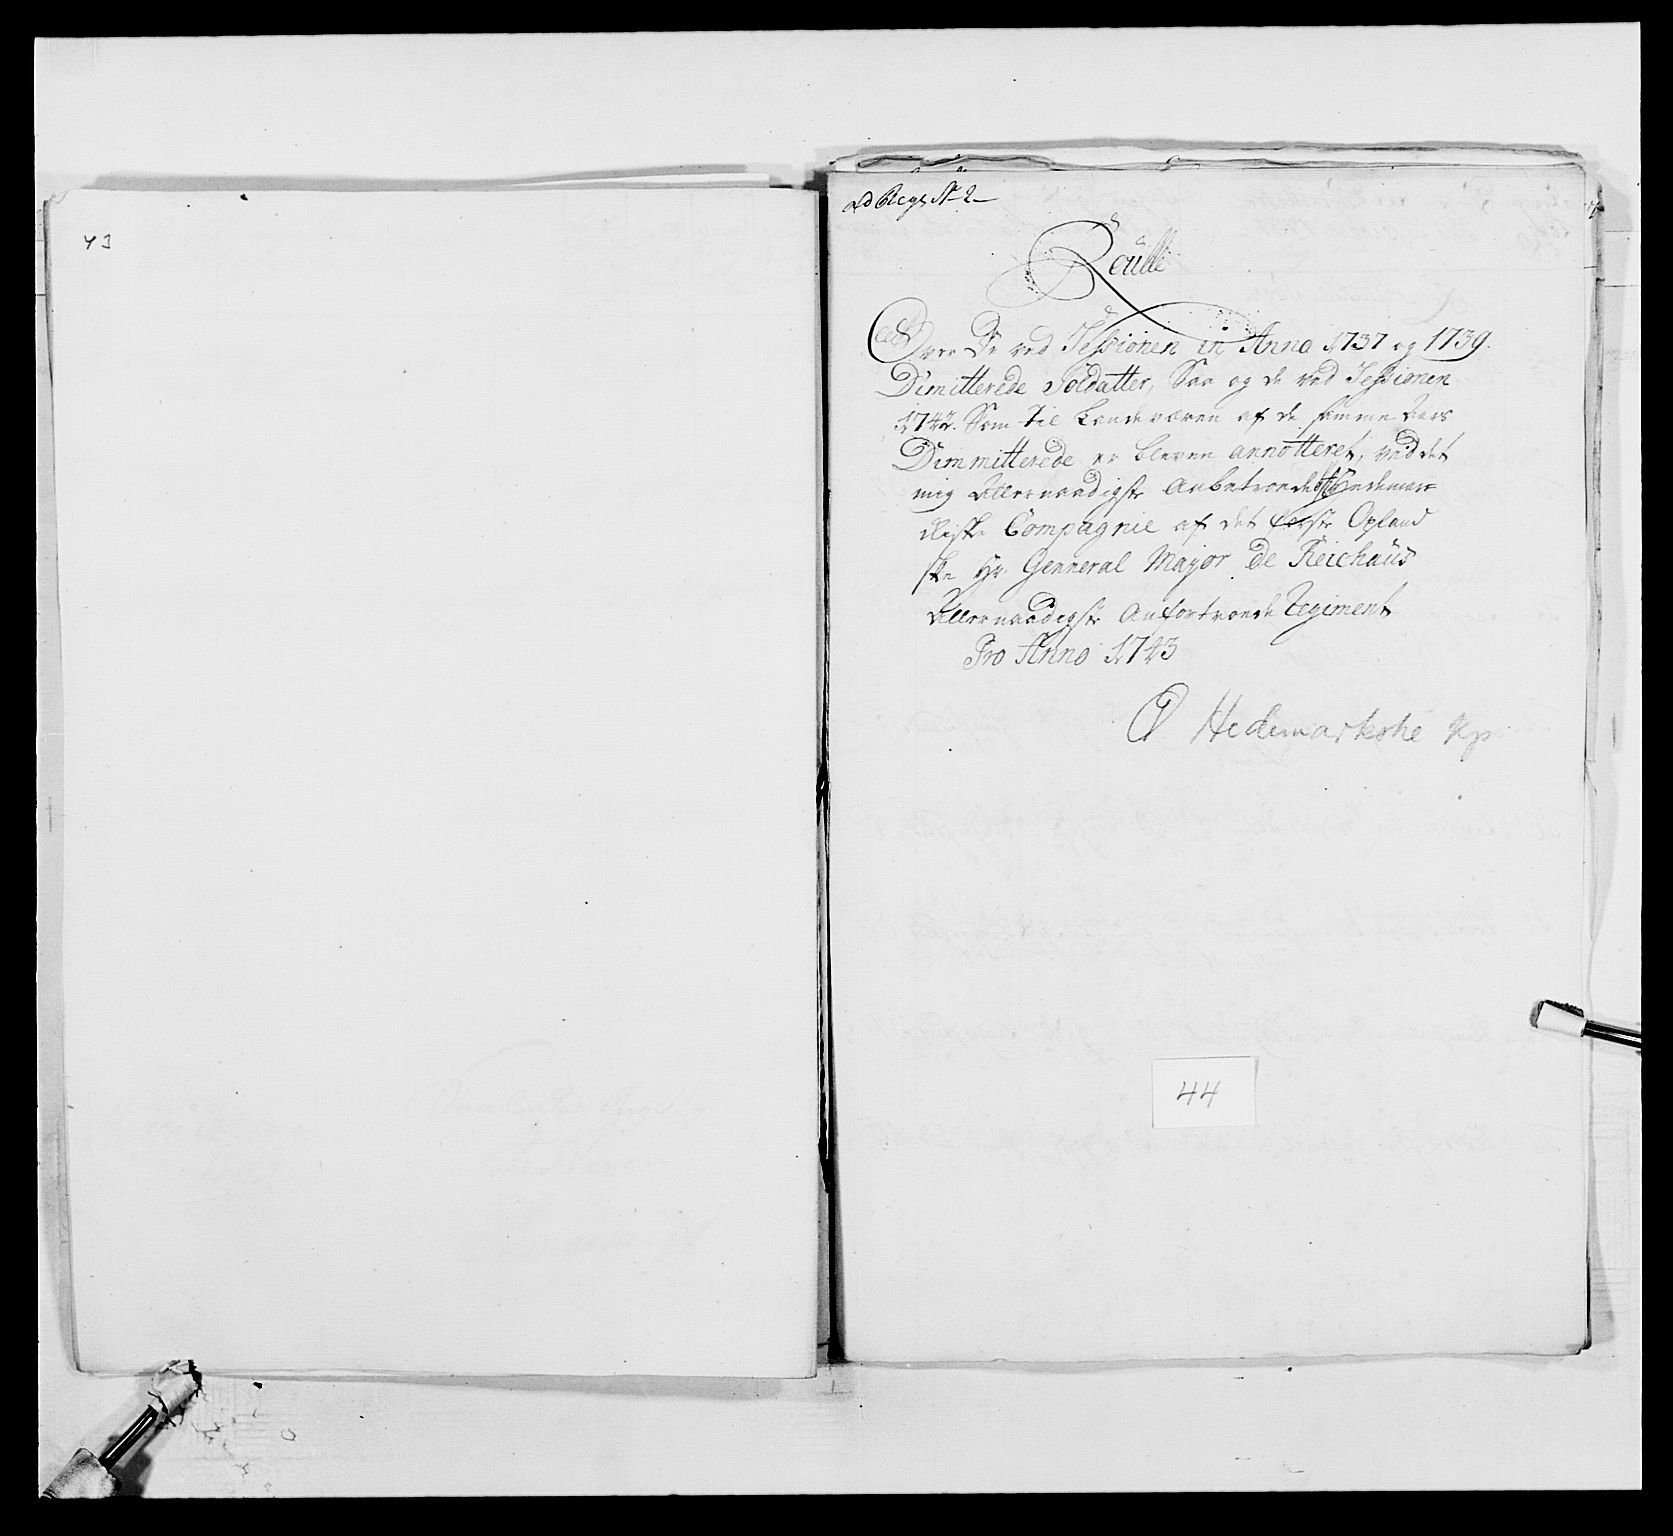 43
ad Regs No 2
Roulle
Over De ved Sessionen in Anno 1737 og 1739.
Dimitterede Soldatter, Saa og de ved Sessionen
1742. Som til Landeværen af de samme Aars
Dimmitterede er bleven annotteret, ved det
mig Allernaadigst Anbetroede Hedemar-
kiske Compagnie af det første Opland
ske Hr. General Major de Reichaus
Allernaadigst Anfortroede Regiment
Pro Anno 1743
Hedemarkske Kp
44